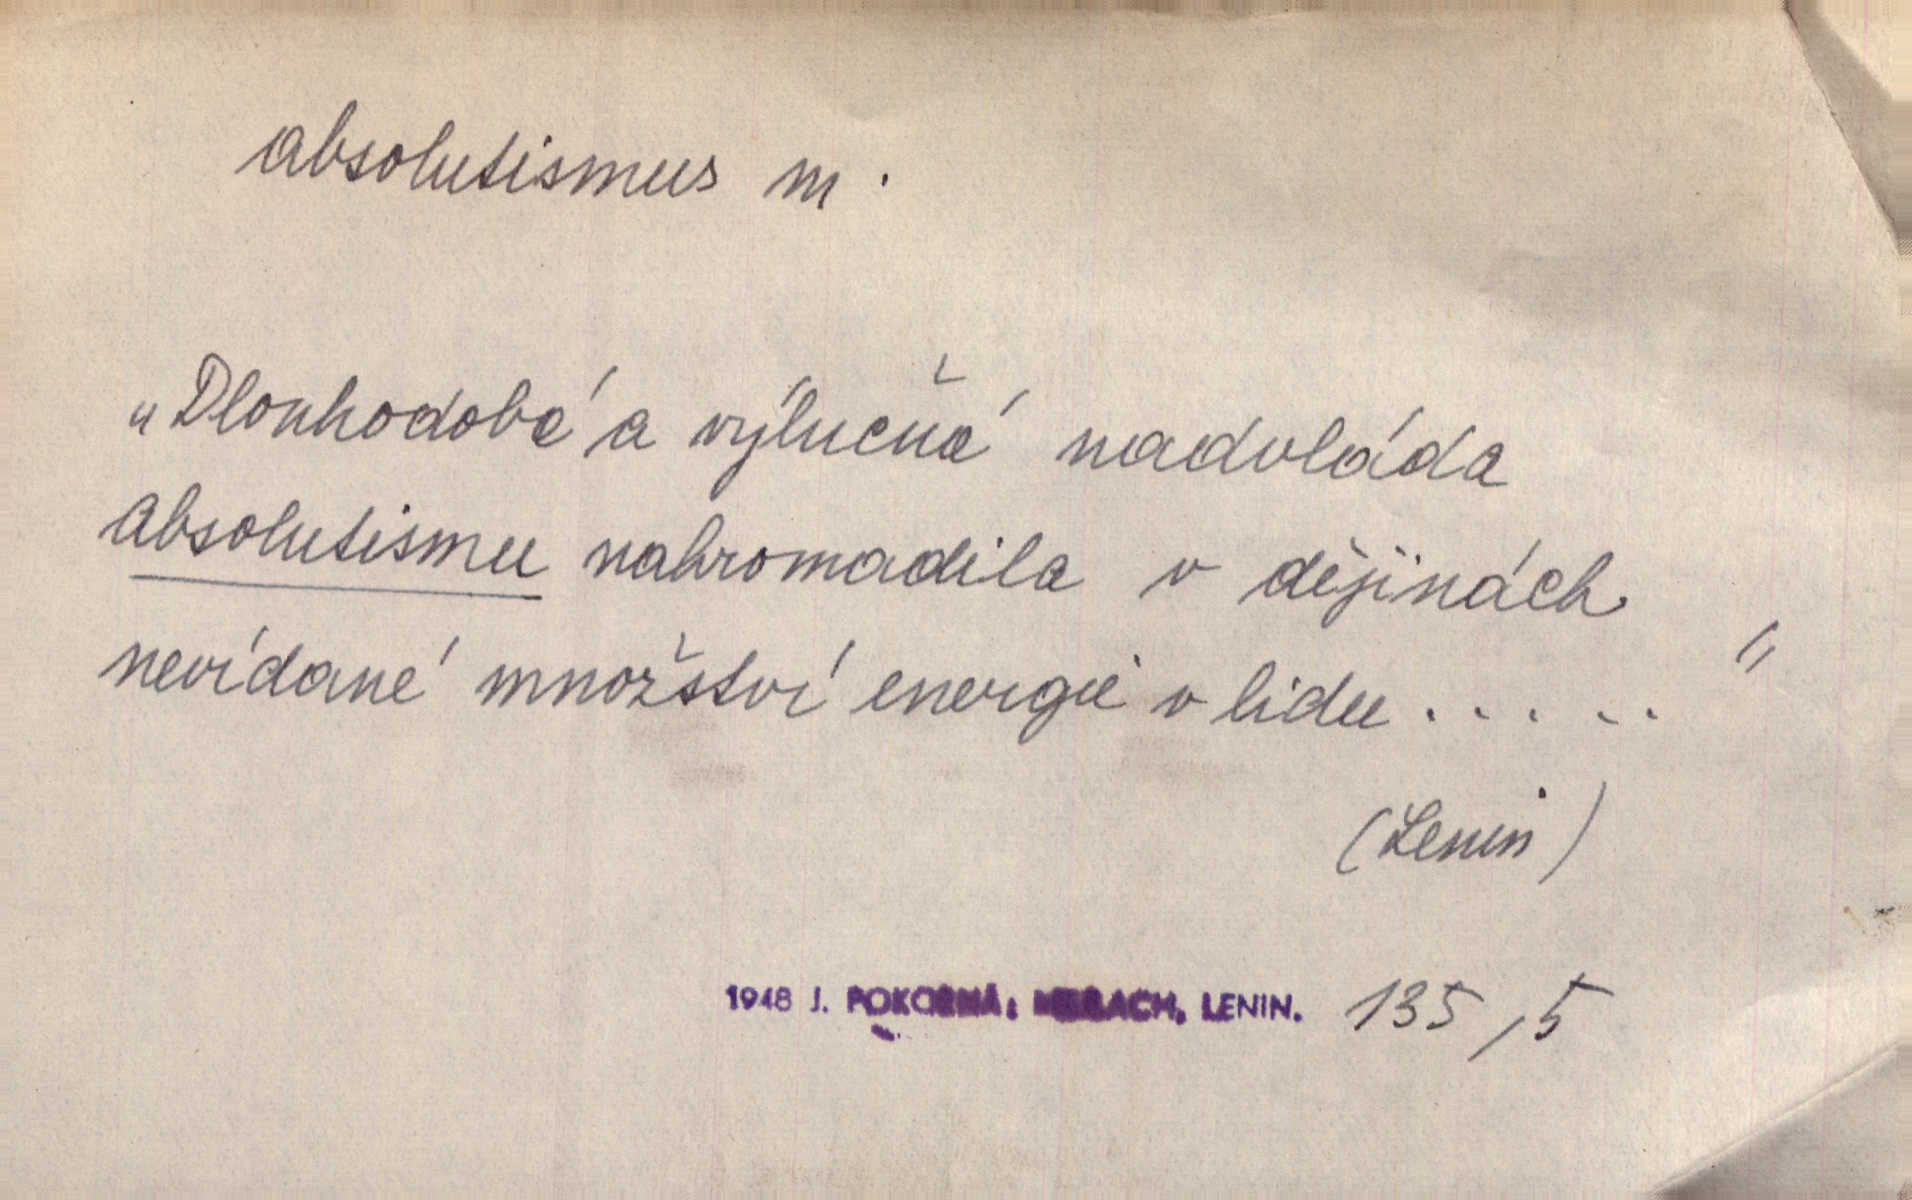 absolutismus m.
„Dlouhodobá a výlučná nadvláda
absolutismu nahromadila v dějinách
nevídané množství energie v lidu ..... "
(Lenin)
1948 J. POKORNÁ: LENIN. 135,5